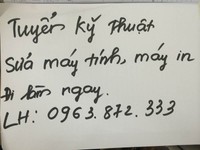 Tuyển kỹ thuật
Sửa máy tính, máy in
Đi làm ngay.
LH: 0963.872.333